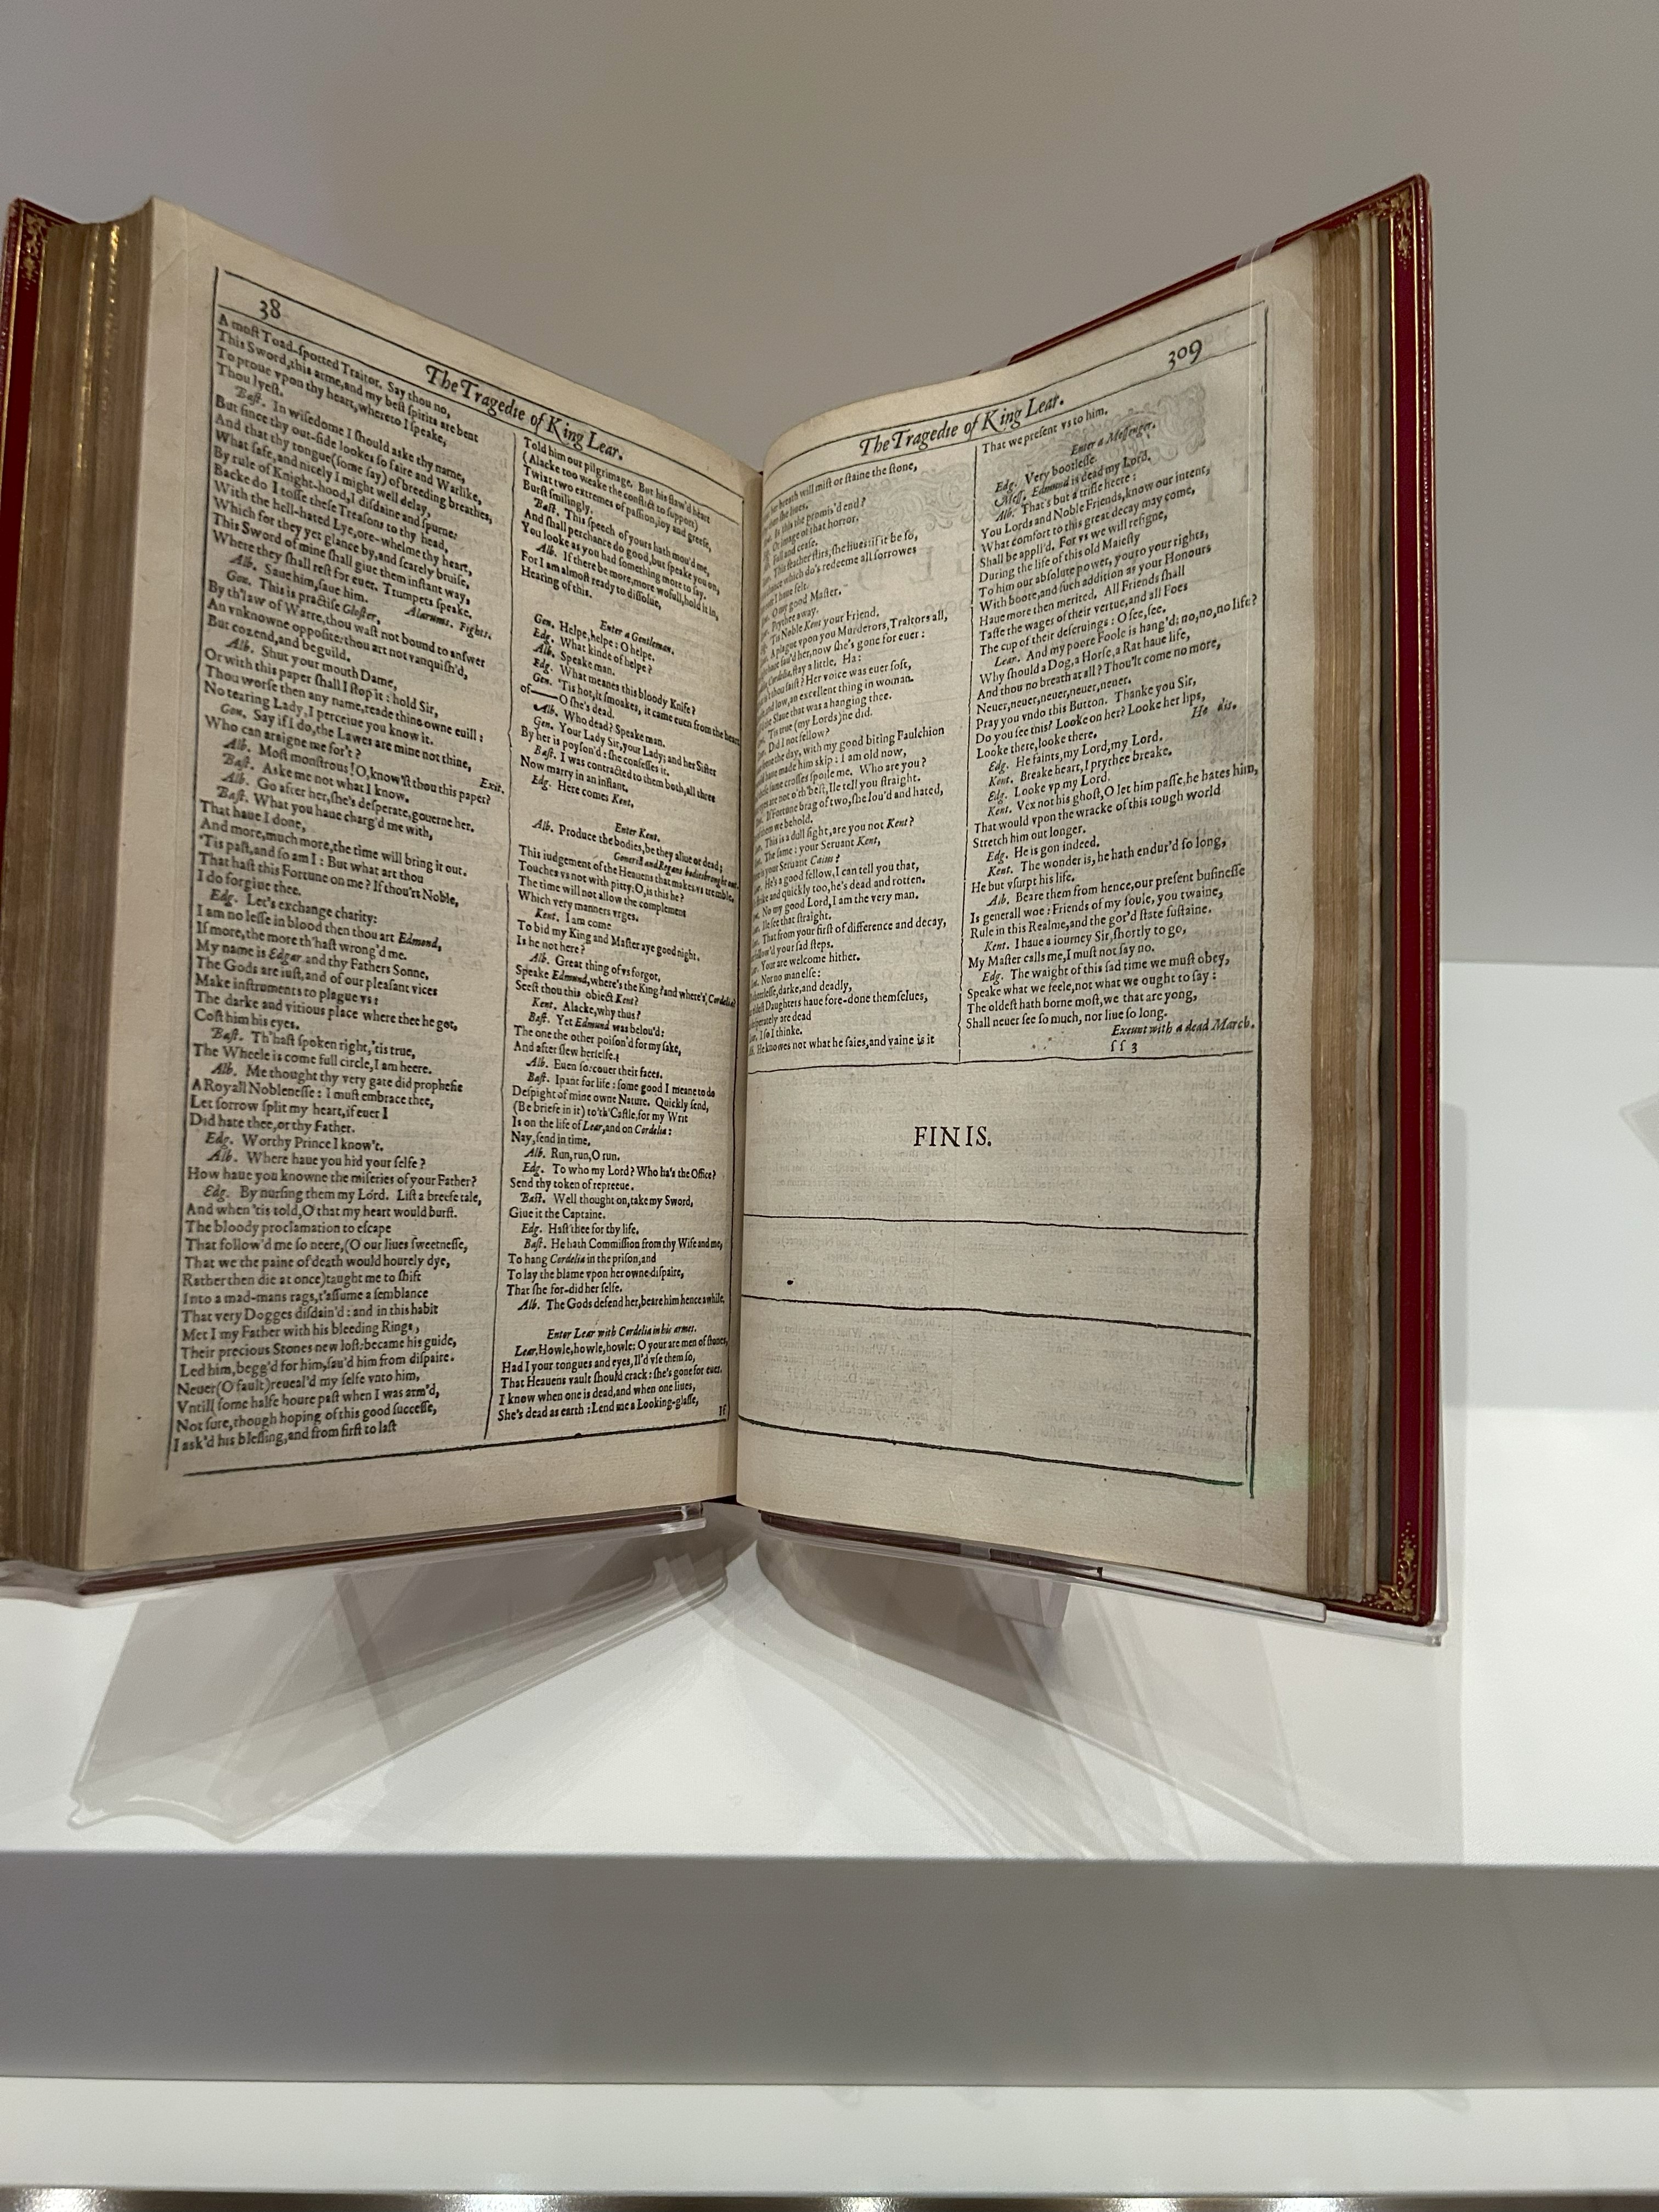 38
The Tragedie of King Lear.
A moſt Toad-ſpotted Traitor. Say thou no,
This Sword, this arme, and my beſt ſpirits are bent
To proue vpon thy heart, whereto I ſpeake,
Thou lyeſt.
Baſt. In wiſedome I ſhould aske thy name,
But ſince thy out-ſide lookes ſo faire and Warlike,
And that thy tongue (ſome ſay) of breeding breathes,
What ſafe, and nicely I might well delay,
By rule of Knight-hood, I diſdaine and ſpurne:
Backe do I toſſe theſe Treaſons to thy head,
With the hell-hated Lye, ore-whelme thy heart,
Which for they yet glance by, and ſcarely bruiſe,
This Sword of mine ſhall giue them inſtant way,
Where they ſhall reſt for euer. Trumpets ſpeake.
Alb. Saue him, ſaue him. Alarums. Fights.
Gon. This is practiſe Gloſter,
By th'law of Warre, thou waſt not bound to anſwer
An vnknowne oppoſite: thou art not vanquiſh'd,
But cozend, and beguild.
Alb. Shut your mouth Dame,
Or with this paper ſhall I ſtop it: hold Sir,
Thou worſe then any name, reade thine owne euill:
No tearing Lady, I perceiue you know it.
Gon. Say if I do, the Lawes are mine not thine,
Who can araigne me for't? Exit.
Alb. Moſt monſtrous! O, know'ſt thou this paper?
Baſt. Aske me not what I know.
Alb. Go after her, ſhe's deſperate, gouerne her.
Baſt. What you haue charg'd me with,
That haue I done,
And more, much more, the time will bring it out.
'Tis paſt, and ſo am I: But what art thou
That haſt this Fortune on me? If thou'rt Noble,
I do forgiue thee.
Edg. Let's exchange charity:
I am no leſſe in blood then thou art Edmond,
If more, the more th'haſt wrong'd me.
My name is Edgar and thy Fathers Sonne,
The Gods are iuſt, and of our pleaſant vices
Make inſtruments to plague vs:
The darke and vitious place where thee he got,
Coſt him his eyes.
Baſt. Th'haſt ſpoken right, 'tis true,
The Wheele is come full circle, I am heere.
Alb. Me thought thy very gate did propheſie
A Royall Nobleneſſe: I muſt embrace thee,
Let ſorrow ſplit my heart, if euer I
Did hate thee, or thy Father.
Edg. Worthy Prince I know't.
Alb. Where haue you hid your ſelfe?
How haue you knowne the miſeries of your Father?
Edg. By nurſing them my Lord. Liſt a breefe tale,
And when 'tis told, O that my heart would burſt.
The bloody proclamation to eſcape
That follow'd me ſo neere, (O our liues ſweetneſſe,
That we the paine of death would hourely dye,
Rather then die at once) taught me to ſhift
Into a mad-mans rags, t'aſſume a ſemblance
That very Dogges diſdain'd: and in this habit
Met I my Father with his bleeding Rings,
Their precious Stones new loſt: became his guide,
Led him, begg'd for him, ſau'd him from diſpaire.
Neuer (O fault) reueal'd my ſelfe vnto him,
Vntill ſome halfe houre paſt when I was arm'd,
Not ſure, though hoping of this good ſucceſſe,
I ask'd his bleſſing, and from firſt to laſt
Told him our pilgrimage. But his flaw'd heart
(Alacke too weake the conflict to ſupport)
Twixt two extremes of paſſion, ioy and greefe,
Burſt ſmilingly.
Baſt. This ſpeech of yours hath mou'd me,
And ſhall perchance do good, but ſpeake you on,
You looke as you had ſomething more to ſay.
Alb. If there be more, more wofull, hold it in,
For I am almoſt ready to diſſolue,
Hearing of this.
Enter a Gentleman.
Gen. Helpe, helpe: O helpe.
Edg. What kinde of helpe?
Alb. Speake man.
Edg. What meanes this bloody Knife?
Gen. 'Tis hot, it ſmoakes, it came euen from the heart
of—— O ſhe's dead.
Alb. Who dead? Speake man.
Gen. Your Lady Sir, your Lady; and her Siſter
By her is poyſon'd: ſhe confeſſes it.
Baſt. I was contracted to them both, all three
Now marry in an inſtant.
Edg. Here comes Kent.
Enter Kent.
Alb. Produce the bodies, be they aliue or dead;
Gonerill and Regans bodies brought out.
This iudgement of the Heauens that makes vs tremble.
Touches vs not with pitty: O, is this he?
The time will not allow the complement
Which very manners vrges.
Kent. I am come
To bid my King and Maſter aye good night.
Is he not here?
Alb. Great thing of vs forgot,
Speake Edmund, where's the King? and where's Cordelia?
Seeſt thou this obiect Kent?
Kent. Alacke, why thus?
Baſt. Yet Edmund was belou'd:
The one the other poiſon'd for my ſake,
And after ſlew herſelfe.
Alb. Euen ſo: couer their faces.
Baſt. I pant for life: ſome good I meane to do
Deſpight of mine owne Nature. Quickly ſend,
(Be briefe in it) to'th'Caſtle, for my Writ
Is on the life of Lear, and on Cordelia:
Nay, ſend in time.
Alb. Run, run, O run.
Edg. To who my Lord? Who ha's the Office?
Send thy token of repreeue.
Baſt. Well thought on, take my Sword,
Giue it the Captaine.
Edg. Haſt thee for thy life.
Baſt. He hath Commiſſion from thy Wife and me,
To hang Cordelia in the priſon, and
To lay the blame vpon her owne diſpaire,
That ſhe for-did her ſelfe.
Alb. The Gods defend her, beare him hence awhile.
Enter Lear with Cordelia in his armes.
Lear. Howle, howle, howle: O your are men of ſtones,
Had I your tongues and eyes, Il'd vſe them ſo,
That Heauens vault ſhould crack: ſhe's gone for euer.
I know when one is dead, and when one liues,
She's dead as earth: Lend me a Looking-glaſſe,
If
309
The Tragedie of King Lear.
her breath will miſt or ſtaine the ſtone,
ſhe liues.
Is this the promis'd end?
Or image of that horror.
Fall and ceaſe.
This feather ſtirs, ſhe liues: if it be ſo,
chance which do's redeeme all ſorrowes
I haue felt.
O my good Maſter.
Prythee away.
'Tis Noble Kent your Friend.
A plague vpon you Murderors, Traitors all,
ſau'd her, now ſhe's gone for euer:
Cordelia, ſtay a little. Ha:
thou ſaiſt? Her voice was euer ſoft,
and low, an excellent thing in woman.
the Slaue that was a hanging thee.
'Tis true (my Lords) he did.
Did I not fellow?
ſeene the day, with my good biting Faulchion
would haue made him skip: I am old now,
theſe ſame croſſes ſpoile me. Who are you?
eyes are not o'th'beſt, Ile tell you ſtraight.
If Fortune brag of two, ſhe lou'd and hated,
of them we behold.
This is a dull ſight, are you not Kent?
The ſame: your Seruant Kent,
is your Seruant Caius?
He's a good fellow, I can tell you that,
ſtrike and quickly too, he's dead and rotten.
No my good Lord, I am the very man.
Ile ſee that ſtraight.
That from your firſt of difference and decay,
follow'd your ſad ſteps.
Your are welcome hither.
Nor no man elſe:
darke, and deadly,
Daughters haue fore-done themſelues,
deſperately are dead
I ſo I thinke.
He knowes not what he ſaies, and vaine is it
That we preſent vs to him.
Enter a Meſſenger.
Edg. Very bootleſſe.
Meſſ. Edmund is dead my Lord.
Alb. That's but a trifle heere:
You Lords and Noble Friends, know our intent,
What comfort to this great decay may come,
Shall be appli'd. For vs we will reſigne,
During the life of this old Maieſty
To him our abſolute power, you to your rights,
With boote, and ſuch addition as your Honours
Haue more then merited. All Friends ſhall
Taſte the wages of their vertue, and all Foes
The cup of their deſeruings: O ſee, ſee.
Lear. And my poore Foole is hang'd: no, no, no life?
Why ſhould a Dog, a Horſe, a Rat haue life,
And thou no breath at all? Thou'lt come no more,
Neuer, neuer, neuer, neuer, neuer.
Pray you vndo this Button. Thanke you Sir,
Do you ſee this? Looke on her? Looke her lips,
Looke there, looke there. He dis.
Edg. He faints, my Lord, my Lord.
Kent. Breake heart, I prythee breake.
Edg. Looke vp my Lord.
Kent. Vex not his ghoſt, O let him paſſe, he hates him,
That would vpon the wracke of this tough world
Stretch him out longer.
Edg. He is gon indeed.
Kent. The wonder is, he hath endur'd ſo long,
He but vſurpt his life.
Alb. Beare them from hence, our preſent buſineſſe
Is generall woe: Friends of my ſoule, you twaine,
Rule in this Realme, and the gor'd ſtate ſuſtaine.
Kent. I haue a iourney Sir, ſhortly to go,
My Maſter calls me, I muſt not ſay no.
Edg. The waight of this ſad time we muſt obey,
Speake what we feele, not what we ought to ſay:
The oldeſt hath borne moſt, we that are yong,
Shall neuer ſee ſo much, nor liue ſo long.
Exeunt with a dead March.
ſſ 3
FINIS.